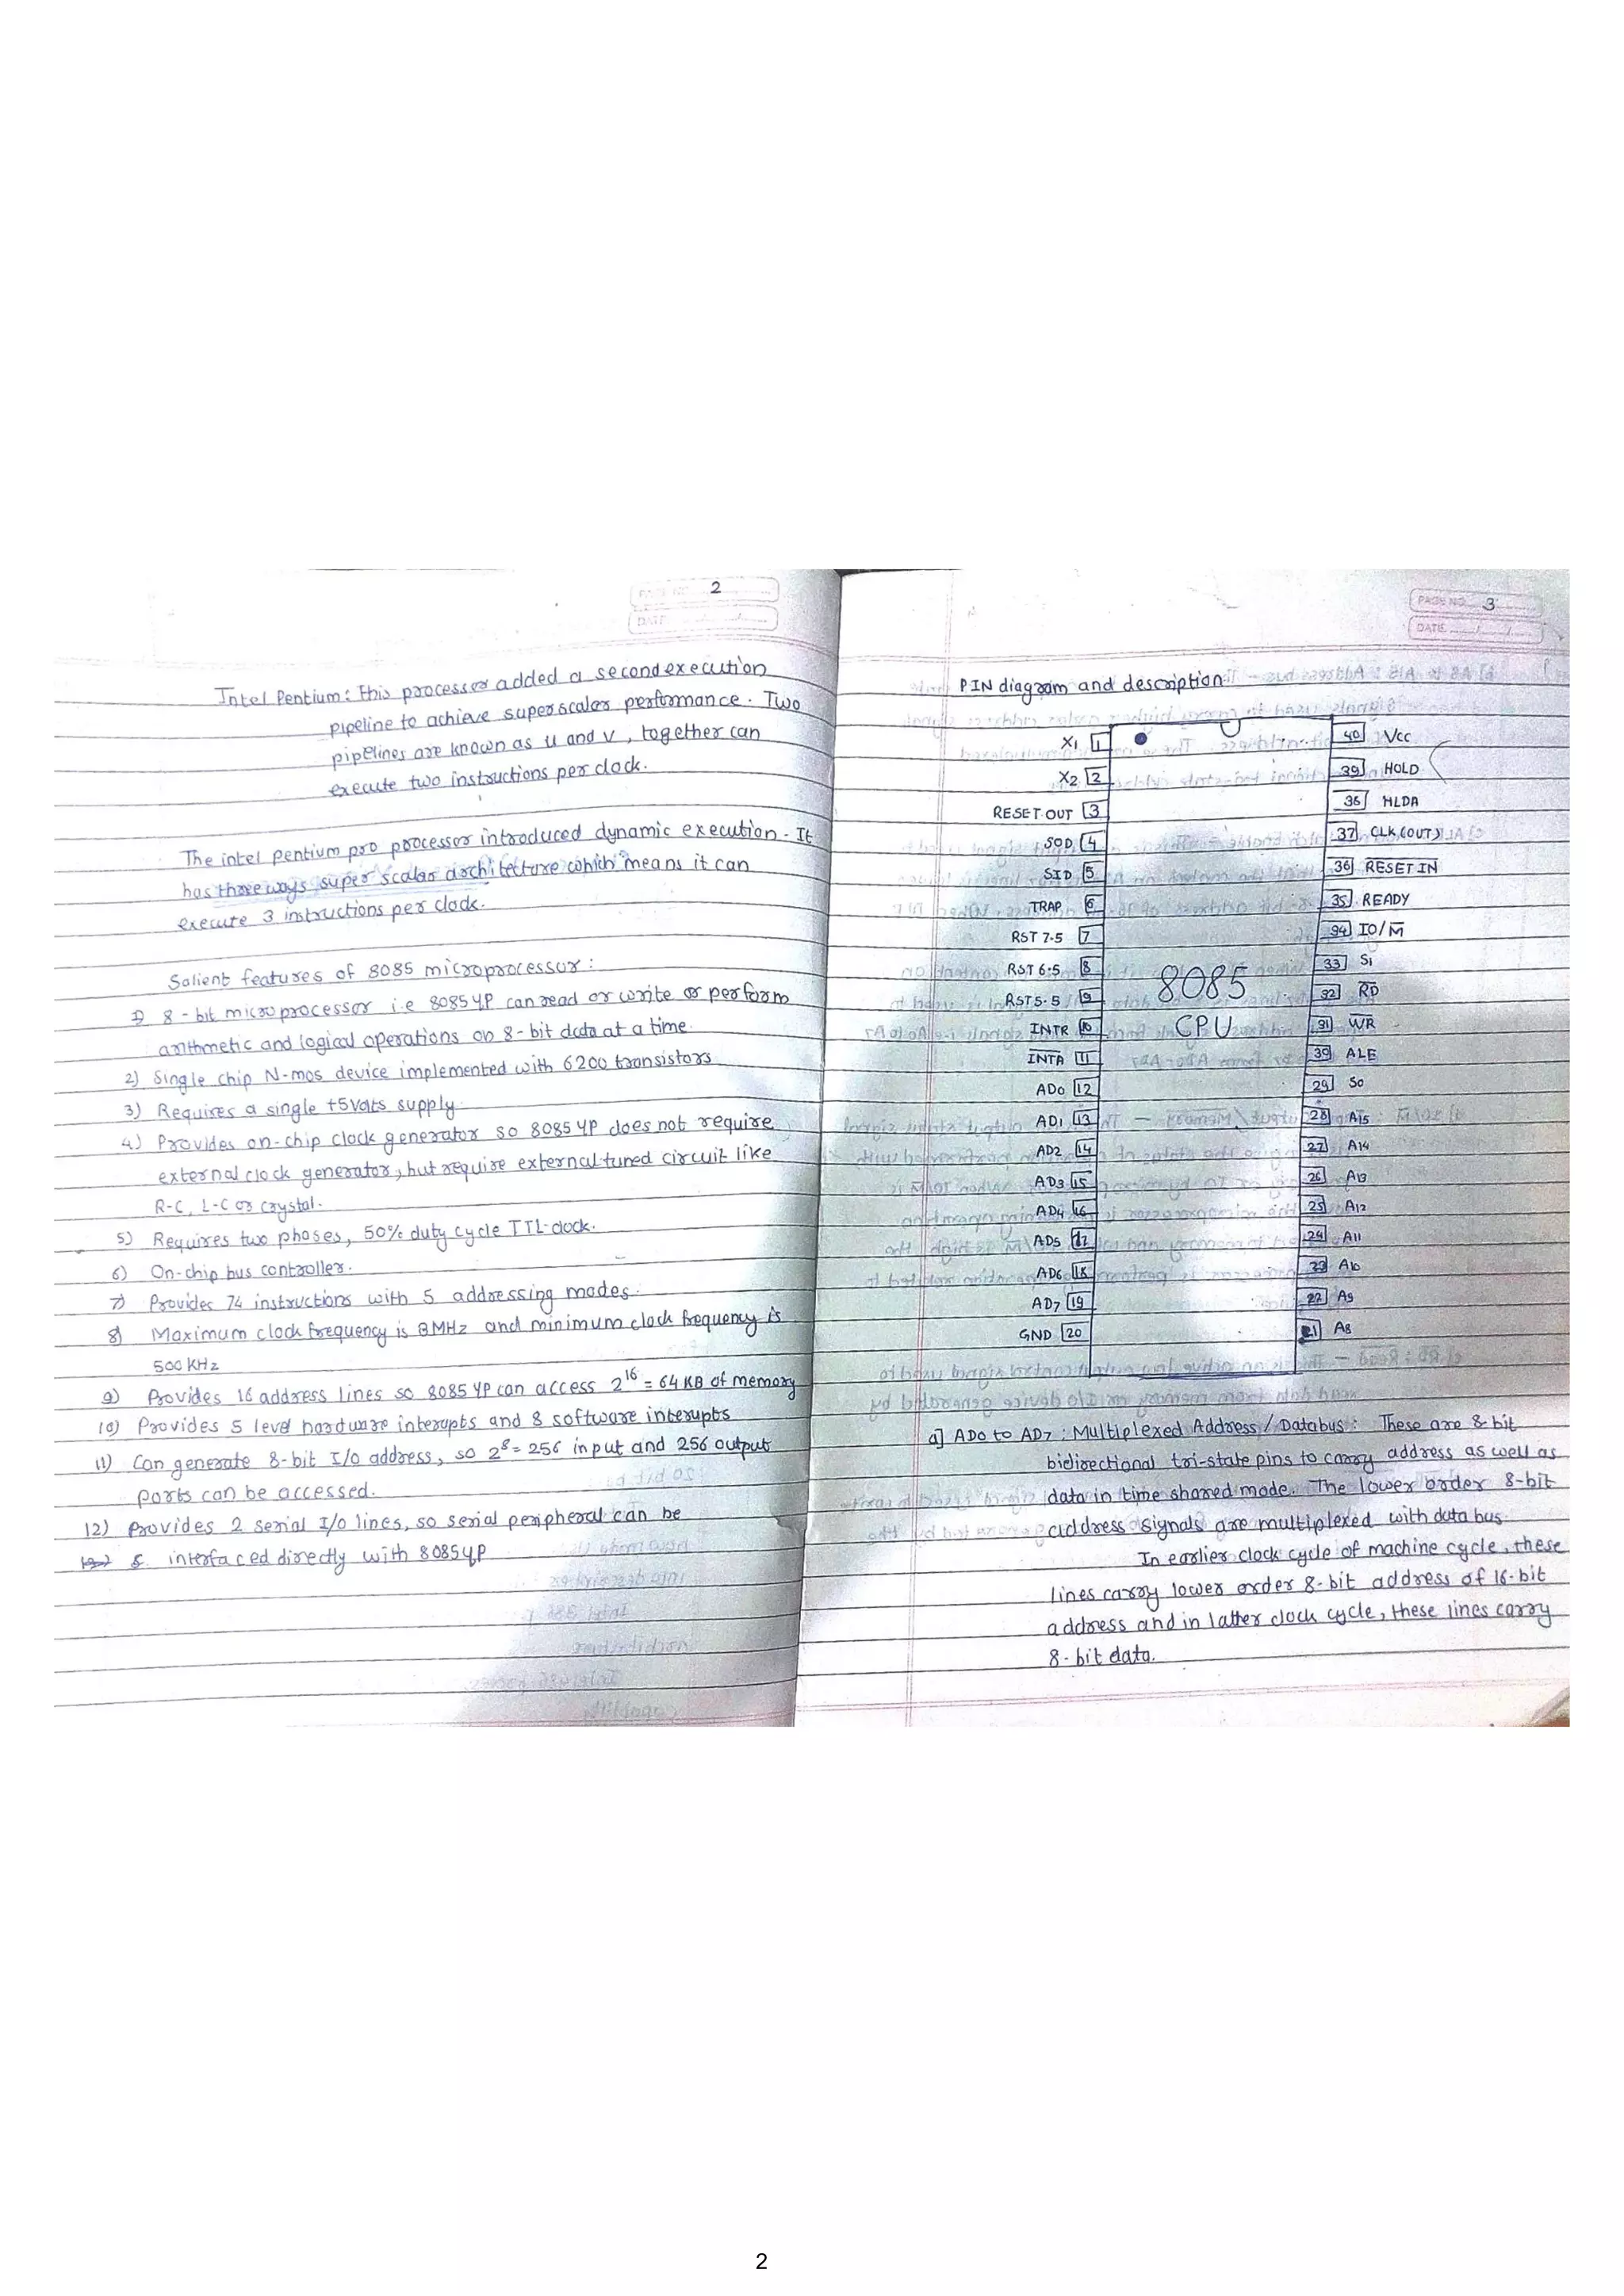 PAGE NO. 2
DATE / /
Intel Pentium: this processor added a second execution
pipeline to achieve superscalar performance. Two
pipelines are known as u and v, together can
execute two instructions per clock.
The intel pentium pro processor introduced dynamic execution. It
has three ways super scalar architecture which means it can
execute 3 instructions per clock.
Salient features of 8085 microprocessor:
1) 8-bit microprocessor i.e 8085 μP can read or write or perform
arithmetic and logical operations on 8-bit data at a time.
2) Single chip N-mos device implemented with 6200 transistors
3) Requires a single +5Volts supply
4) Provides on-chip clock generator so 8085 μP does not require
external clock generator, but require external tuned circuit like
R-C, L-C or crystal.
5) Requires two phases, 50% duty cycle TTL clock.
6) On-chip bus controller.
7) Provides 74 instructions with 5 addressing modes.
8) Maximum clock frequency is 3MHz and minimum clock frequency is
500 KHz
9) Provides 16 address lines so 8085 μP can access 2^16 = 64 KB of memory
10) Provides 5 level hardware interupts and 8 software interupts
11) Can generate 8-bit I/O address, so 2^8 = 256 input and 256 output
ports can be accessed.
12) Provides 2 serial I/O lines, so serial peripheral can be
interfaced directly with 8085 μP
PAGE NO. 3
DATE / /
PIN diagram and description
X1 1
X2 2
RESET OUT 3
SOD 4
SID 5
TRAP 6
RST 7.5 7
RST 6.5 8
RST 5.5 9
INTR 10
I̅N̅T̅A̅ 11
AD0 12
AD1 13
AD2 14
AD3 15
AD4 16
AD5 17
AD6 18
AD7 19
GND 20
8085
CPU
40 Vcc
39 HOLD
38 HLDA
37 CLK (OUT)
36 R̅E̅S̅E̅T̅ ̅I̅N̅
35 READY
34 IO/M̅
33 S1
32 R̅D̅
31 W̅R̅
39 ALE
29 S0
28 A15
27 A14
26 A13
25 A12
24 A11
23 A10
22 A9
21 A8
a] AD0 to AD7 : Multiplexed Address / Databus : These are 8 bit
bidirectional tri-state pins to carry address as well as
data in time shared mode. The lower order 8-bit
address signals are multiplexed with data bus.
In earlier clock cycle of machine cycle, these
lines carry lower order 8-bit address of 16-bit
address and in latter clock cycle, these lines carry
8-bit data.
2